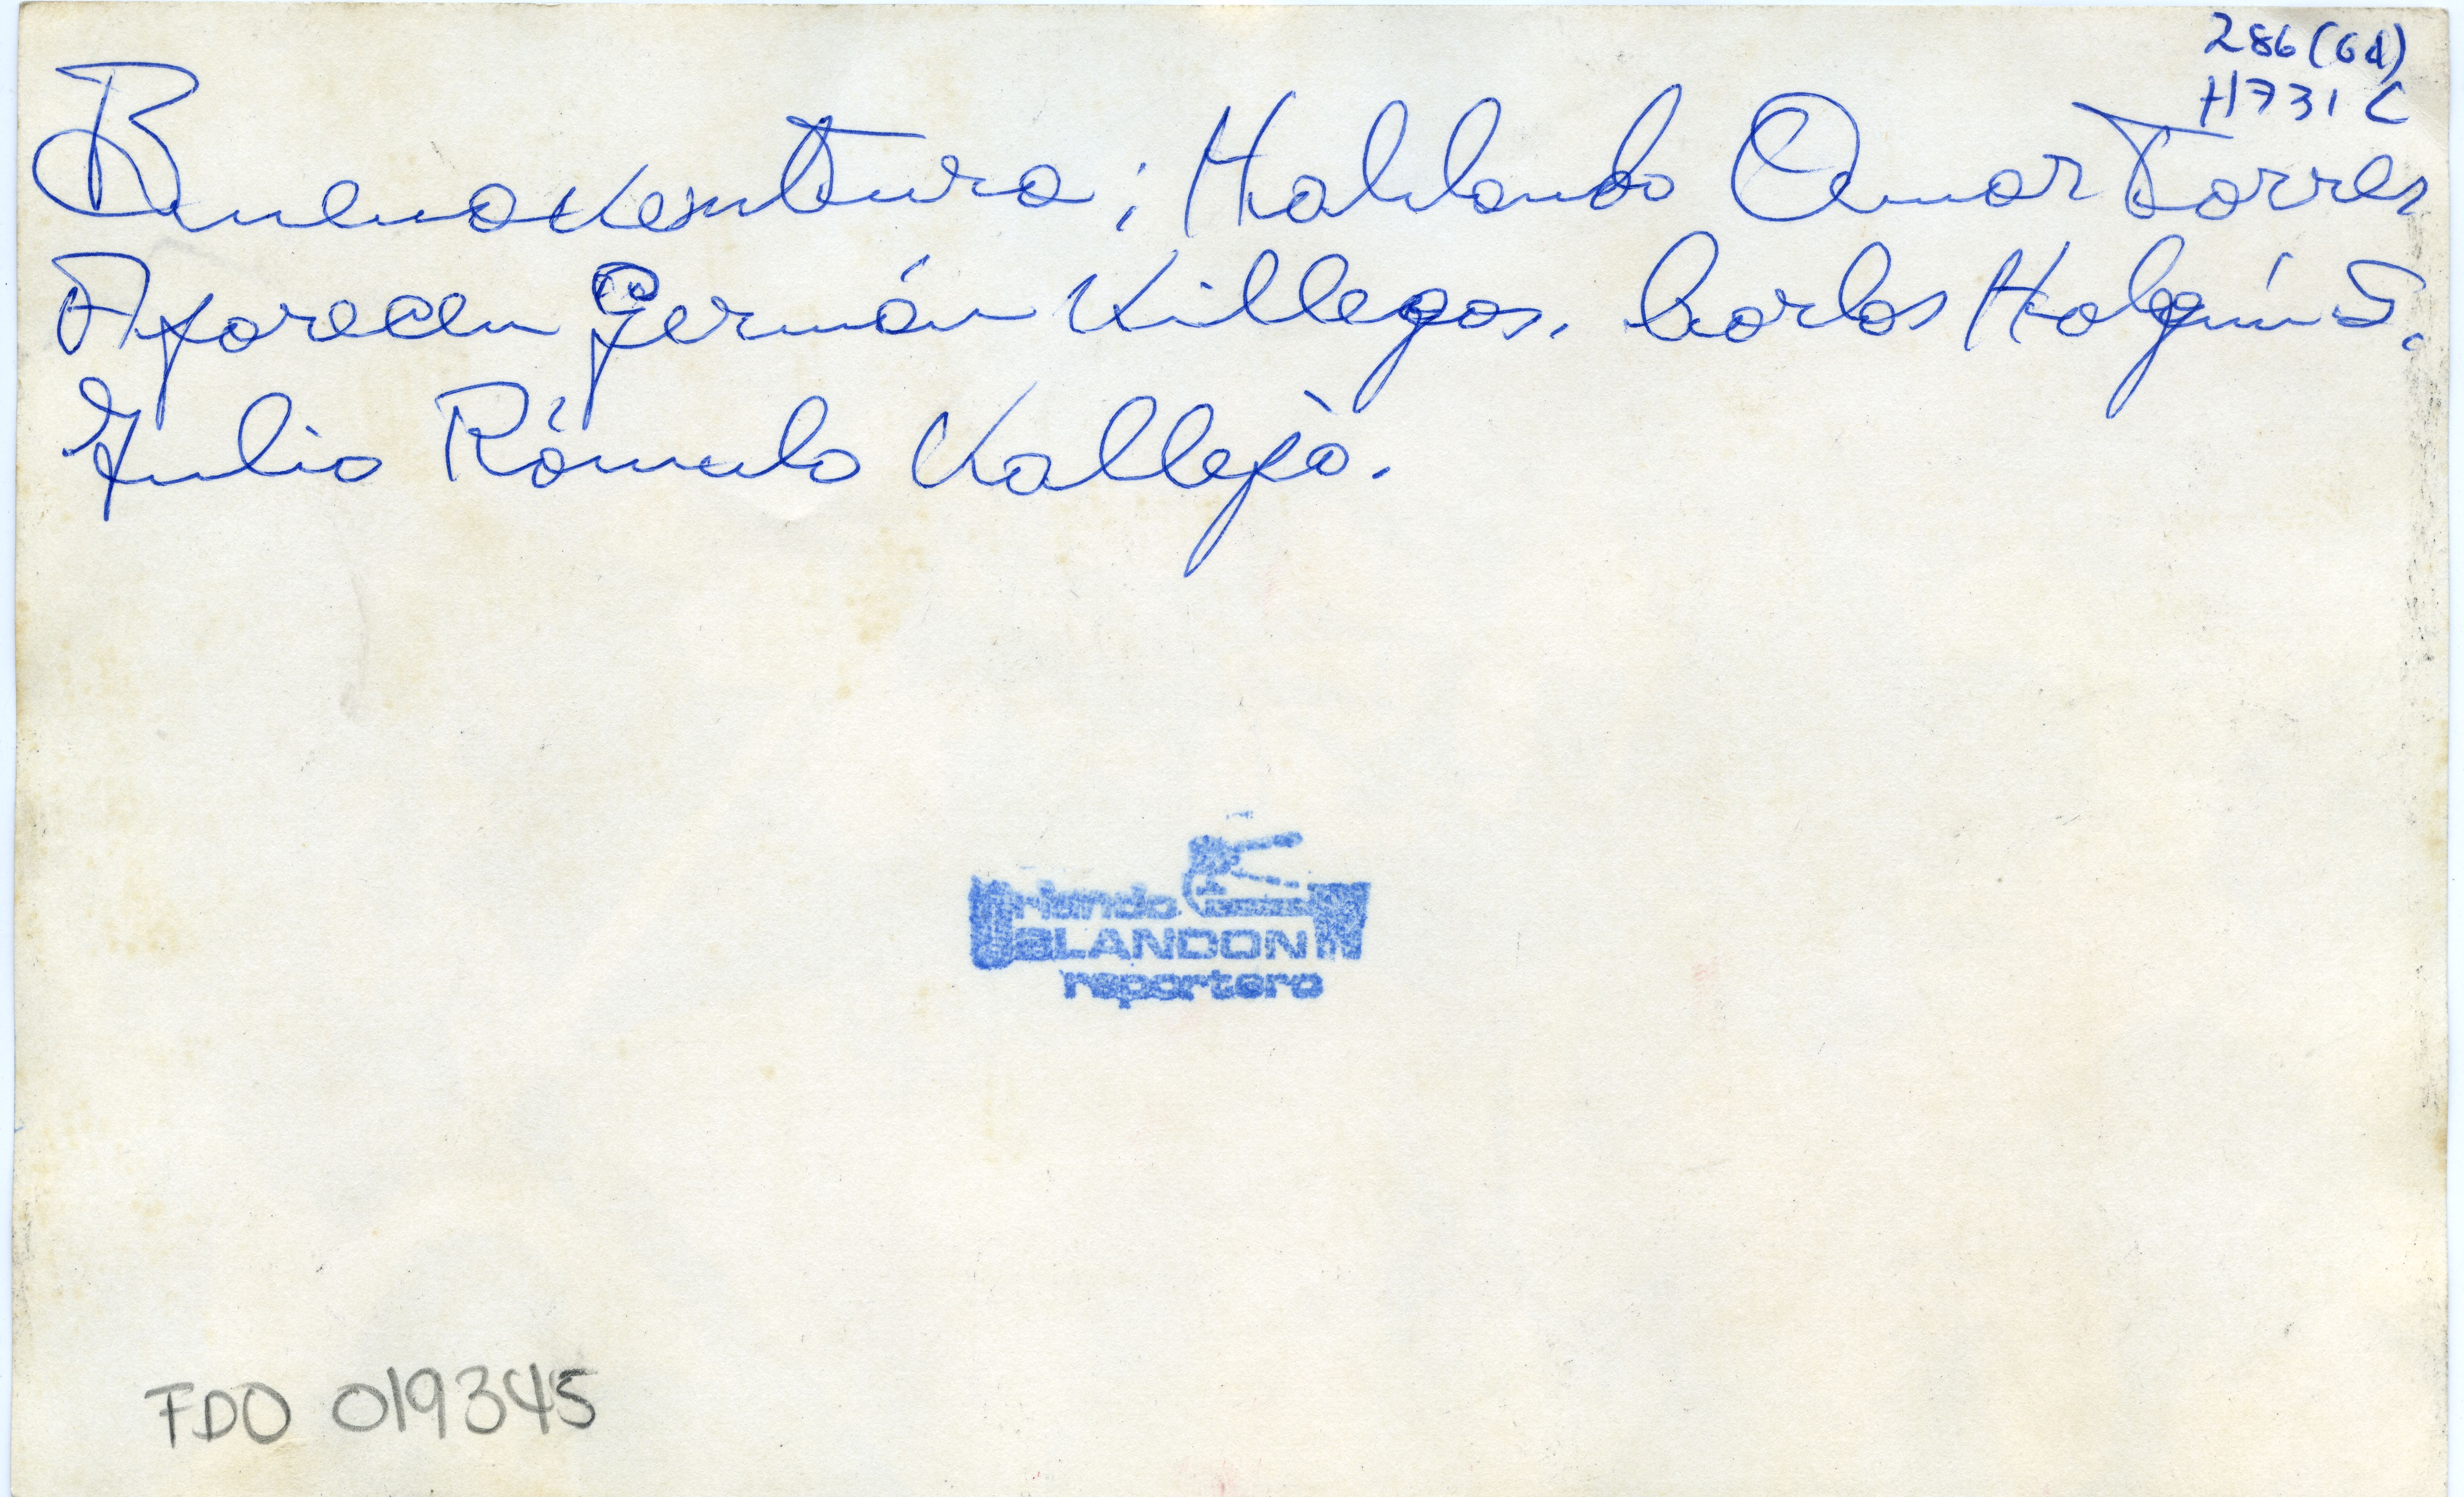 286 (Gd)
H731 C
Buenaventura; Hablando Omar Torres
Aparecen Germán Villegas. Carlos Holguín S.
Julio Rómulo Vallejo.
Orlando
BLANDON
reportero
FDO 019345